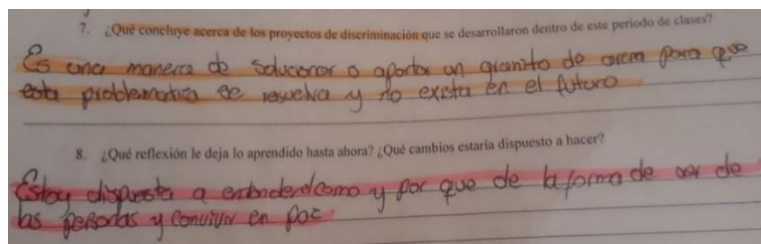 7. ¿Qué concluye acerca de los proyectos de discriminación que se desarrollaron dentro de este periodo de clases?
Es una manera de solucionar o aportar un granito de arena para que
esta problematica se resuelva y no exista en el futuro
8. ¿Qué reflexión le deja lo aprendido hasta ahora? ¿Qué cambios estaría dispuesto a hacer?
Estoy dispuesta a entender como y por que de la forma de ser de
las personas y convivir en paz